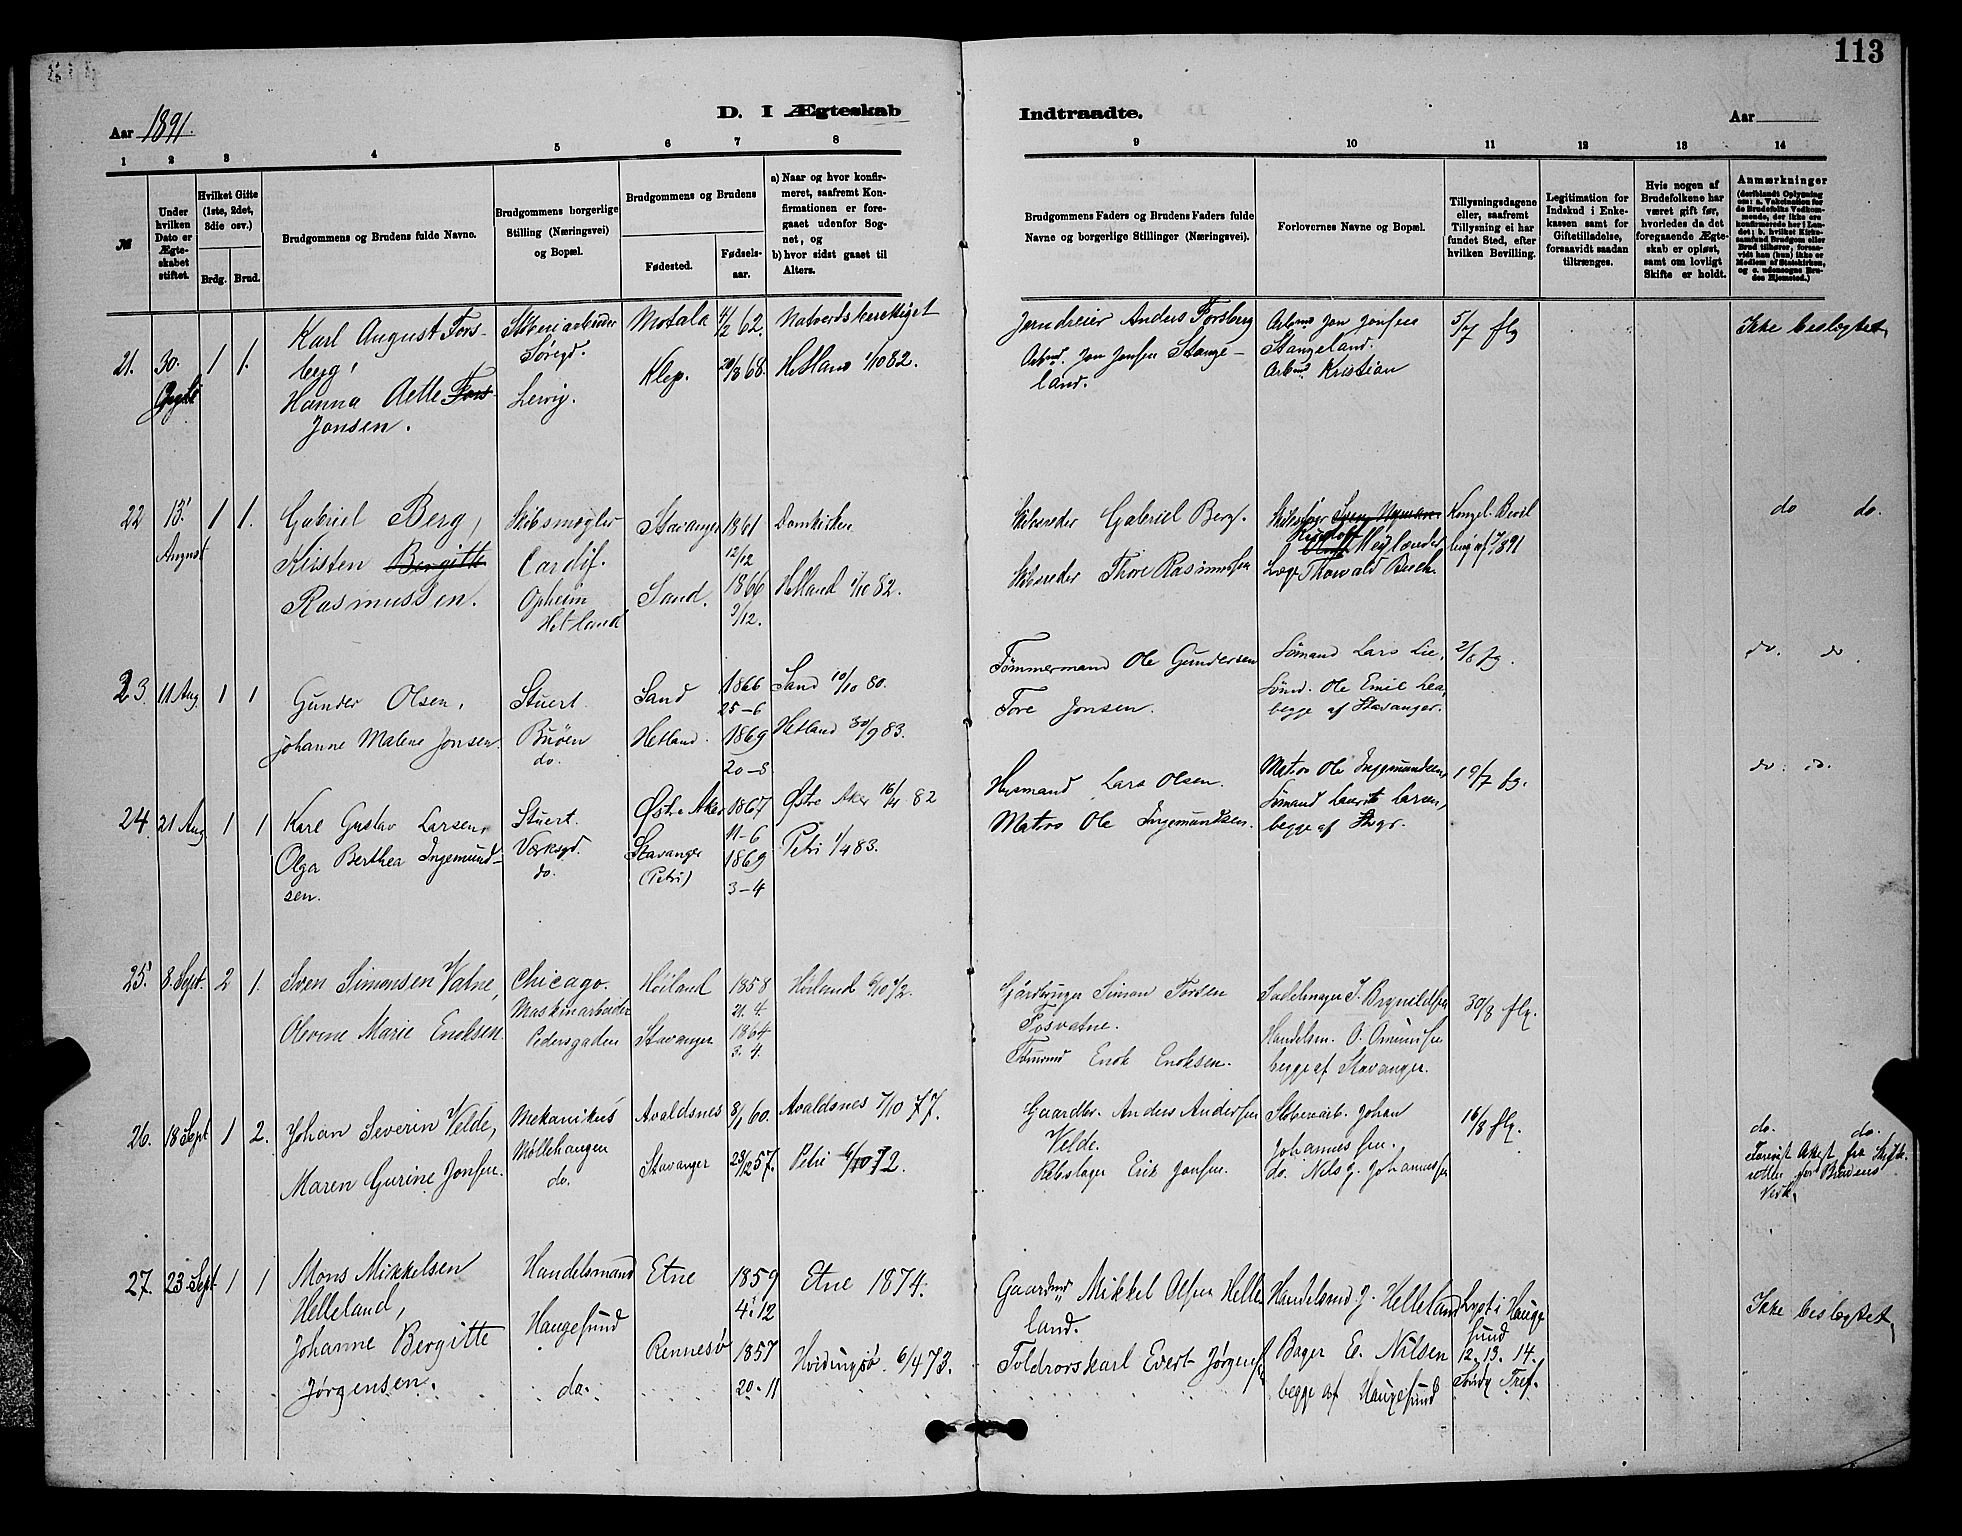 113
Aar 1891.
D. I Ægteskab
Indtraadte.
Aar
1 2 3 4 5 6 7 8
9 10 11 12 13 14
№
Under hvilken Dato er Ægteskabet stiftet.
Hvilket Gifte (1ste, 2det, 3die osv.)
Brdg. Brud.
Brudgommens og Brudens fulde Navne.
Brudgommens borgerlige Stilling (Næringsvei) og Bopæl.
Brudgommens og Brudens
Fødested.
Fødselsaar.
a) Naar og hvor konfirmeret, saafremt Konfirmationen er foregaaet udenfor Sognet, og
b) hvor sidst gaaet til Alters.
Brudgommens Faders og Brudens Faders fulde Navne og borgerlige Stillinger (Næringsvei).
Forlovernes Navne og Bopæl.
Tillysningsdagene eller, saafremt Tillysning ei har fundet Sted, efter hvilken Bevilling.
Legitimation for Indskud i Enkekassen samt for Giftetilladelse, forsaavidt saadan tiltrænges.
Hvis nogen af Brudefolkene har været gift før, hvorledes da det foregaaende Ægteskab er opløst, samt om lovligt Skifte er holdt.
Anmærkninger
(deriblandt Oplysning om: a. Vakcination for de Brudefolks Vedkommende, der ikke ere konfirmerede her i Landet; b. hvilket Kirkesamfund Brudgom eller Brud tilhører, forsaavidt han (hun) ikke er Medlem af Statskirken, og c. udensogns Brudens Hjemsted.)
21. 30. 1 1.
Karl August Forsberg,
Hanna Aette Fors-
Jonsen.
Støberiarbeider
Lervig.
Motala 4/12 62.
Klep. 20/8 68.
Natverdsberettiget
Hetland 1/10 82.
Jerndreier Anders Forsberg
Arbmd. Jon Jonsen Stangeland.
Arbmd Jon Jonsen
Stangeland.
Arbmd Kristian
5/7 flg
Ikke beslægtet
22 13. August 1 1.
Gabriel Berg,
Kristen Bergitte
Rasmussen.
Skibsmægler
Cardif.
Opheim
Hetland
Stavanger 1861
12/12
Sand. 1866
9/12.
Domkirken
Hetland 1/10 82.
Skibsreder Gabriel Berg.
Skibsreder Thore Rasmussen
Thorvald Bech.
Kongel. Bevil
do do.
23. 11 Aug 1 1
Gunder Olsen,
Johanne Malene Jonsen.
Stuert.
Buøen
do.
Sand 1866
25-6
Hetland. 1869
20-8
Sand 10/10 80.
Hetland 30/9 83.
Tømmermand Ole Gundersen
Tore Jonsen.
Sømand Lars Lie,
Sømd. Ole Emil Lea,
begge af Stavanger.
2/8 flg.
do. do.
24. 21 Aug 1 1
Karl Gustav Larsen,
Olga Berthea Ingemundsen.
Stuert.
Værksgd.
do.
Østre Aker 1867
11-6
Stavanger 1869
(Petri) 3-4
Østre Aker 16/4 82
Petri 1/4 83.
Husmand Lars Olsen.
Matros Ole Ingemundsen.
Matros Ole Ingemundsen,
Sømand Laurits Larsen,
begge af Stvgr.
19/7 flg.
do. do.
25. 8. Sept. 2 1.
Sven Simonsen Vatne,
Olevine Marie Enoksen.
Chicago.
Maskinarbeider
Pedersgaden
Høiland 1858
21. 4.
Stavanger 1864
3. 4.
Høiland
Simon Torsen
Fosvatne.
Tømmd Enok Enoksen.
Sadelmager J. Brynildsen
Handelsm. O. Omundsen
begge af Stavanger.
30/8 flg.
26. 18 Sept 1 2.
Johan Severin Velde,
Maren Gurine Jonsen.
Mekanikus
Møllehaugen
do.
Avaldsnes 8/1 60.
Stavanger 23/12 57.
Avaldsnes 7/10 77.
Petri 6/10 72.
Gaardbr. Anders Andersen
Velde.
Rebslager Erik Jonsen.
Støberiarb. Johan
Johannessen.
do. Nils J. Johannessen
16/8 flg.
do. do.
Forevist Attest fra Skifteretten for Brudens
Vedk.
27. 23. Sept 1 1
Mons Mikkelsen
Helleland,
Johanne Bergitte
Jørgensen.
Handelsmand
Haugesund
do.
Etne 1859
4. 12
Rennesø 1857
20. 11
Etne 1874.
Hvidingsø 6/4 73.
Gaardmd Mikkel Olsen Helleland.
Toldrorskarl Evert Jørgensen
Handelsmd J. Helleland
Bager E. Nilsen
begge af Haugesund
Lyst i Haugesund
12. 13. 14.
Sønd. Tref.
Ikke beslægtet